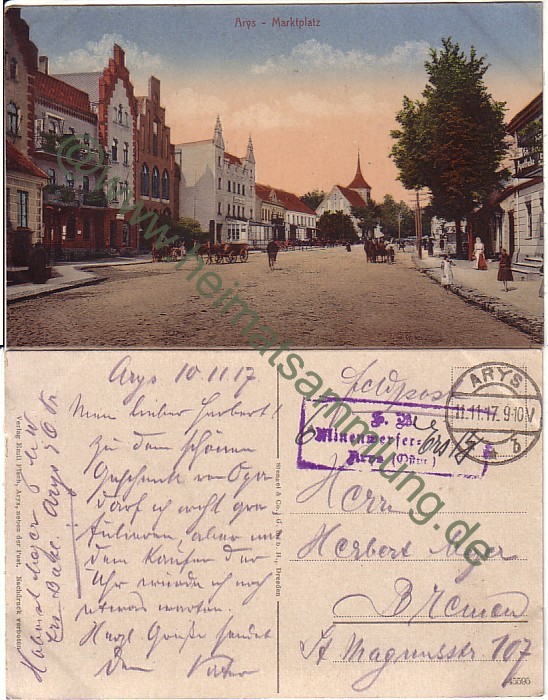 Arys - Marktplatz
© www.heimatsammlung.de
Arys 10.11.17
Mein lieber Herbert!
Zu dem schönen
Geschenk von Opa
darf ich wohl gra
tulieren, aber mit
dem Kaufen der
Uhr würde ich noch
etwas warten.
Herzl. Grüße sendet
Dein Vater
Arys
Verlag Emil Arys, neben der Post. Nachdruck verboten.
Stengel & Co., G. m. b. H., Dresden
Feldpost
ARYS
11.11.17. 9-10 V
b
S. B.
Minenwerfer-
Arys (Ostpr.)
Herrn
Herbert Meyer
Bremen
St Magnusstr 107
45595